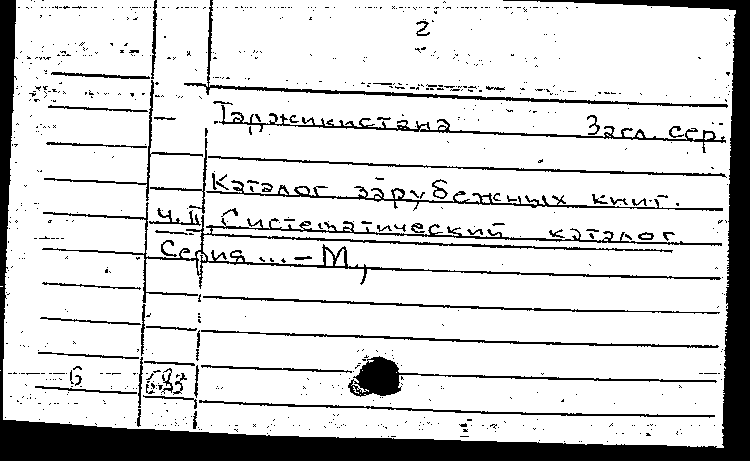 2
Таджикистана Загл. сер.
Каталог зарубежных книг.
Ч. II. Систематический каталог.
Серия ... – М.,
6